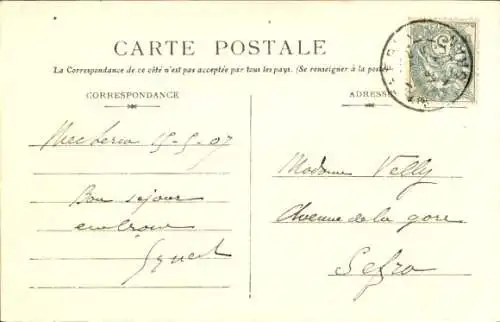 CARTE POSTALE
La Correspondance de ce côté n'est pas acceptée par tous les pays. (Se renseigner à la poste
CORRESPONDANCE
ADRESSE
15-5-07
Bon séjour
Madame Velly
Avenue de la gare
Sefro